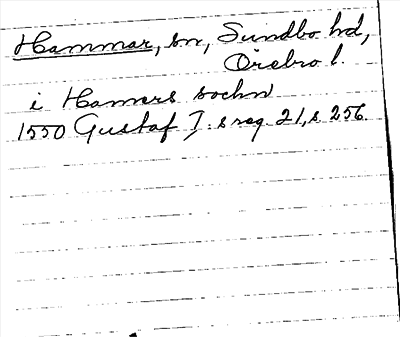 Hammar, sn, Sundbo hd,
Örebro l.
i Hamers sochn
1550 Gustaf I:s reg. 21, s 256.